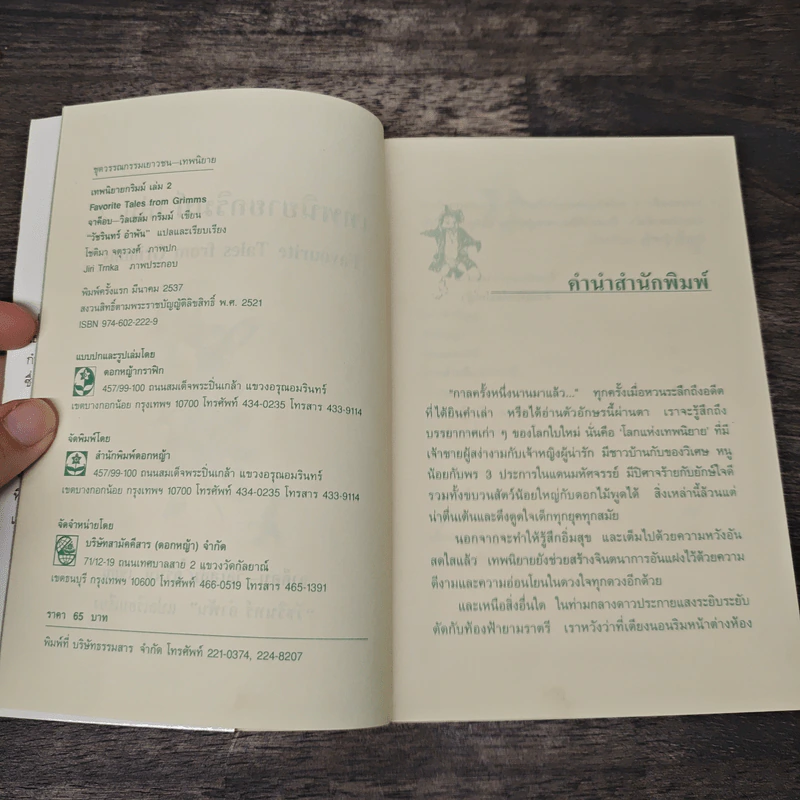 ชุดวรรณกรรมเยาวชน—เทพนิยาย
เทพนิยายกริมม์ เล่ม 2
Favorite Tales from Grimms
จาค็อบ—วิลเฮล์ม กริมม์ เขียน
"วัชรินทร์ อำพัน" แปลและเรียบเรียง
โชติมา จตุรวงค์ ภาพปก
Jiri Trnka ภาพประกอบ
พิมพ์ครั้งแรก มีนาคม 2537
สงวนสิทธิ์ตามพระราชบัญญัติลิขสิทธิ์ พ.ศ. 2521
ISBN 974-602-222-9
แบบปกและรูปเล่มโดย
ดอกหญ้ากราฟิก
457/99-100 ถนนสมเด็จพระปิ่นเกล้า แขวงอรุณอมรินทร์
เขตบางกอกน้อย กรุงเทพฯ 10700 โทรศัพท์ 434-0235 โทรสาร 433-9114
จัดพิมพ์โดย
สำนักพิมพ์ดอกหญ้า
457/99-100 ถนนสมเด็จพระปิ่นเกล้า แขวงอรุณอมรินทร์
เขตบางกอกน้อย กรุงเทพฯ 10700 โทรศัพท์ 434-0235 โทรสาร 433-9114
จัดจำหน่ายโดย
บริษัทสามัคคีสาร (ดอกหญ้า) จำกัด
71/12-19 ถนนเทศบาลสาย 2 แขวงวัดกัลยาณ์
เขตธนบุรี กรุงเทพฯ 10600 โทรศัพท์ 466-0519 โทรสาร 465-1391
ราคา 65 บาท
พิมพ์ที่ บริษัทธรรมสาร จำกัด โทรศัพท์ 221-0374, 224-8207
คำนำสำนักพิมพ์
"กาลครั้งหนึ่งนานมาแล้ว..." ทุกครั้งเมื่อหวนระลึกถึงอดีต
ที่ได้ยินคำเล่า หรือได้อ่านตัวอักษรนี้ผ่านตา เราจะรู้สึกถึง
บรรยากาศเก่า ๆ ของโลกใบใหม่ นั่นคือ 'โลกแห่งเทพนิยาย' ที่มี
เจ้าชายผู้สง่างามกับเจ้าหญิงผู้น่ารัก มีชาวบ้านกับของวิเศษ หนู
น้อยกับพร 3 ประการในแดนมหัศจรรย์ มีปีศาจร้ายกับยักษ์ใจดี
รวมทั้งขบวนสัตว์น้อยใหญ่กับดอกไม้พูดได้ สิ่งเหล่านี้ล้วนแต่
น่าตื่นเต้นและดึงดูดใจเด็กทุกยุคทุกสมัย
นอกจากจะทำให้รู้สึกอิ่มสุข และเต็มไปด้วยความหวังอัน
สดใสแล้ว เทพนิยายยังช่วยสร้างจินตนาการอันแฝงไว้ด้วยความ
ดีงามและความอ่อนโยนในดวงใจทุกดวงอีกด้วย
และเหนือสิ่งอื่นใด ในท่ามกลางดาวประกายแสงระยิบระยับ
ตัดกับท้องฟ้ายามราตรี เราหวังว่าที่เตียงนอนริมหน้าต่างห้อง